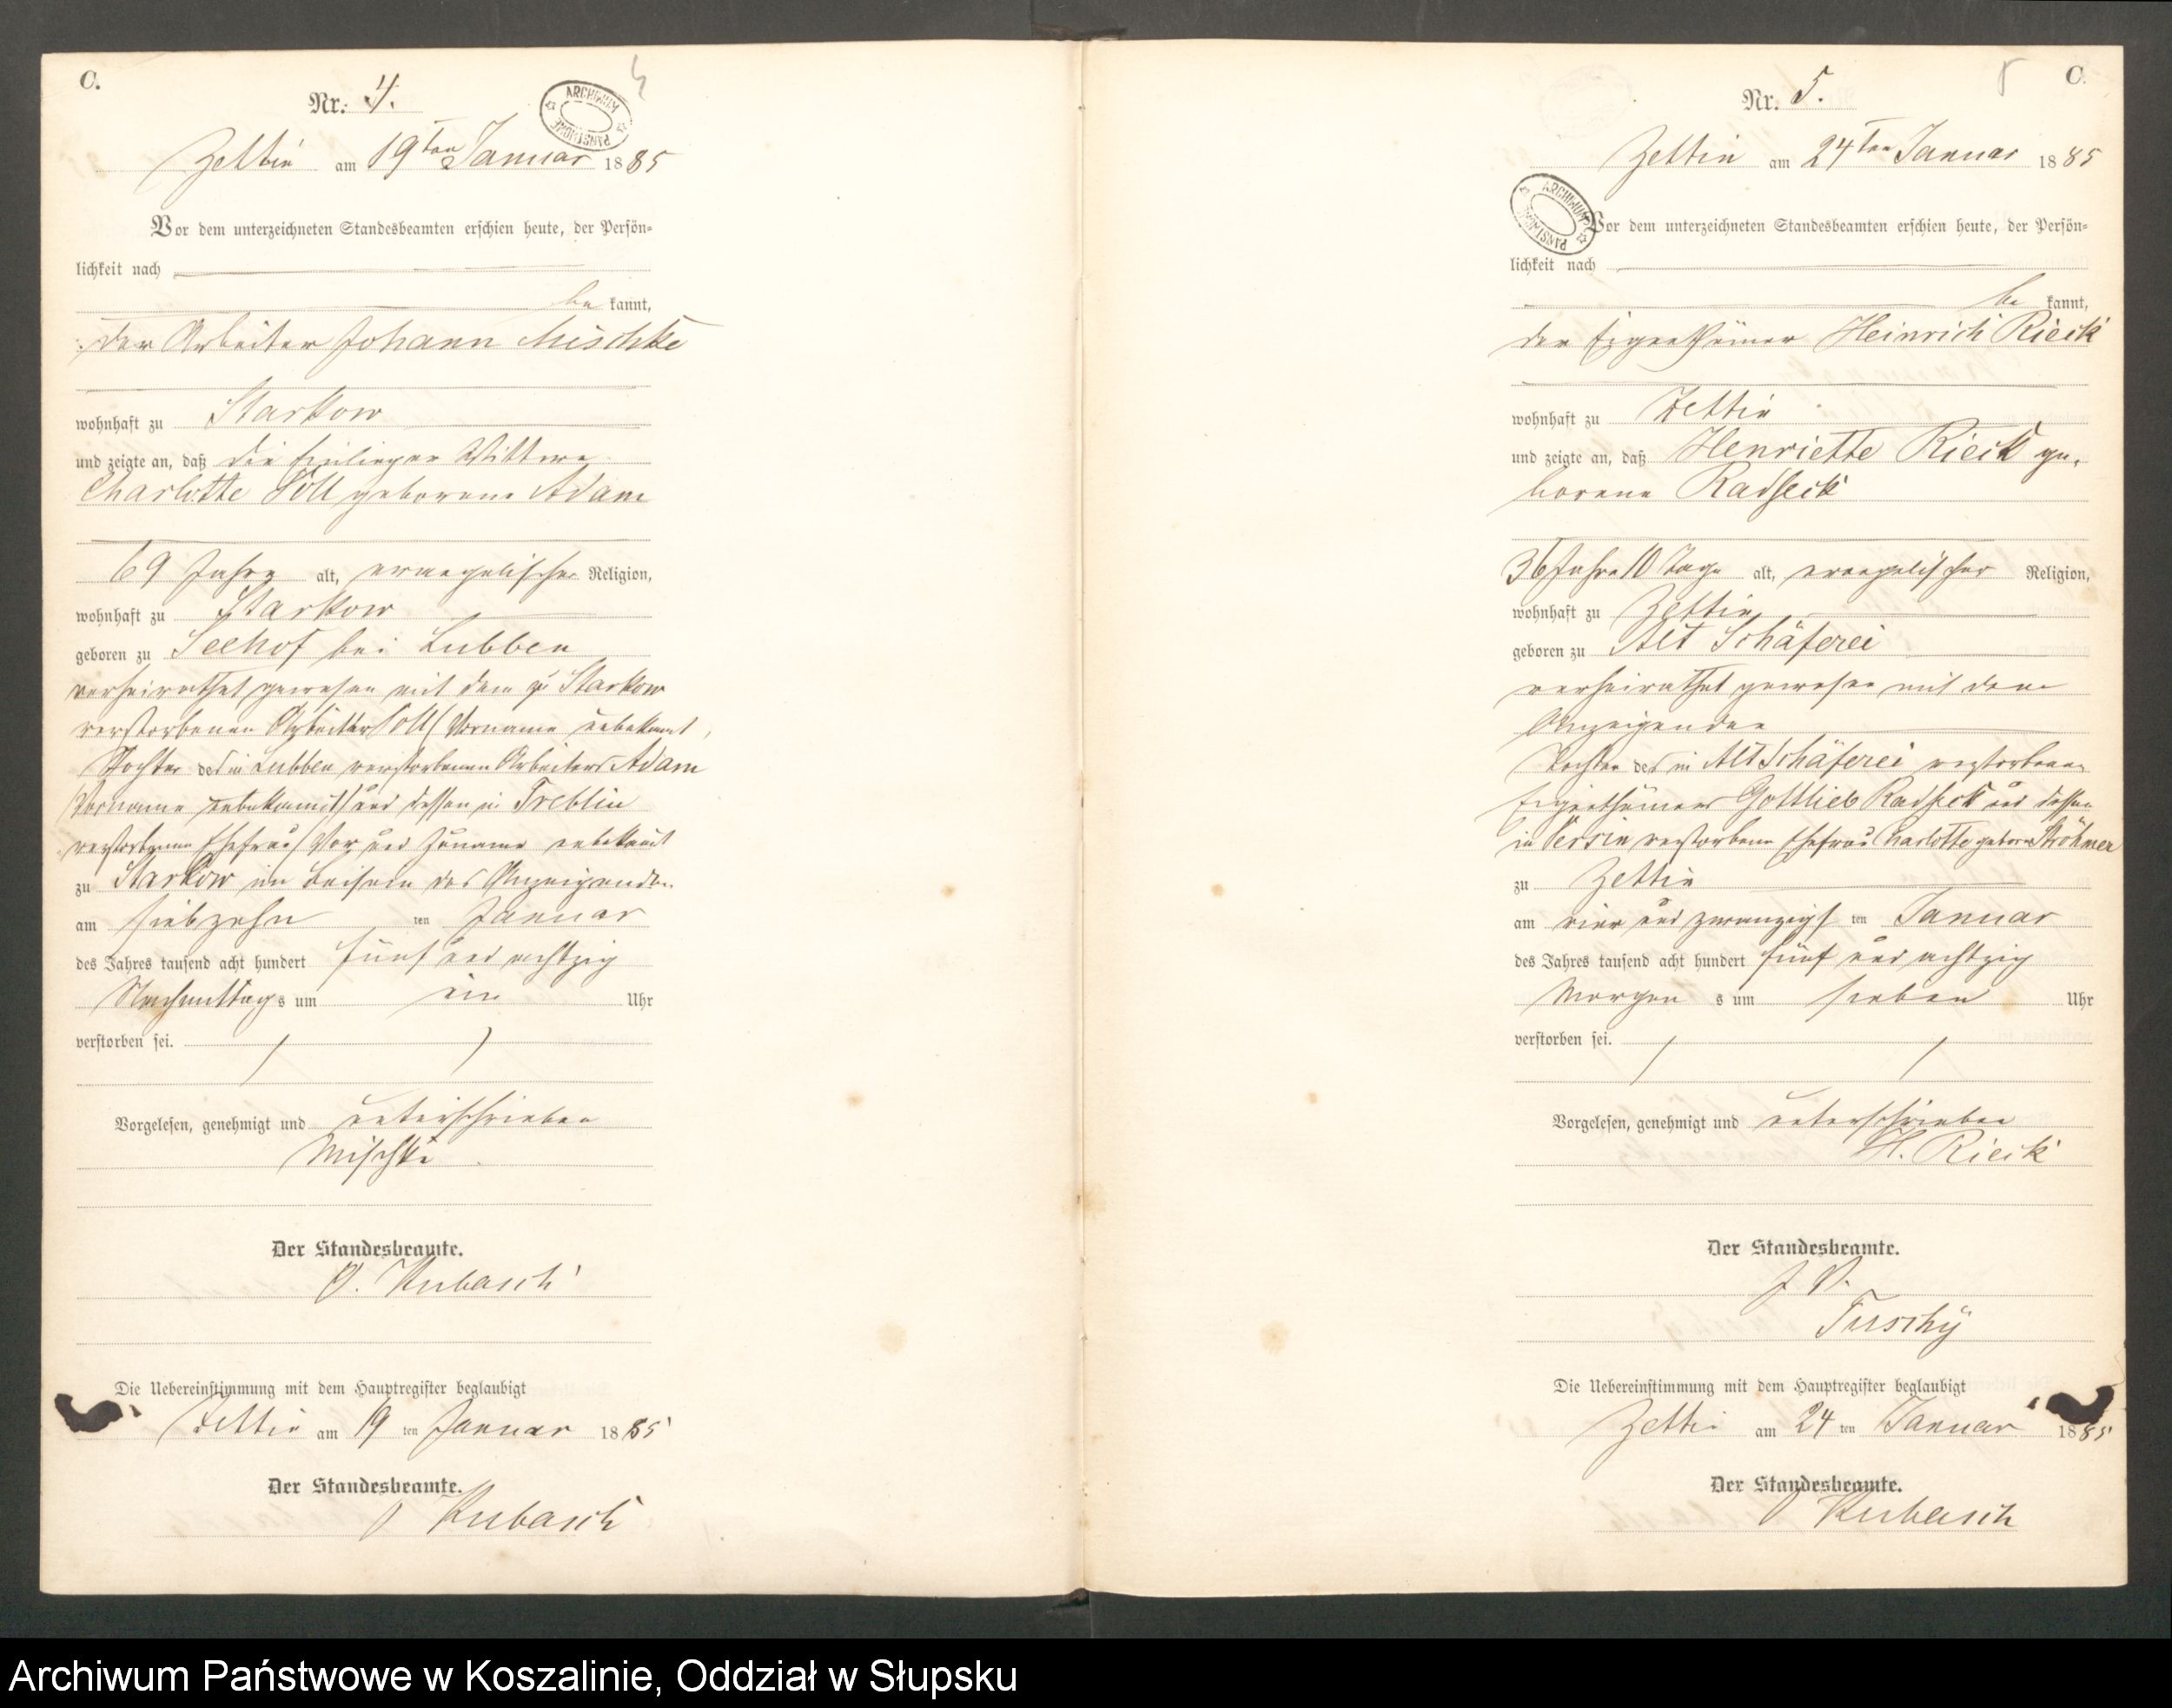 C.
Nr. 4.
ARCHIWUM PAŃSTWOWE
Zettin am 19ten Januar 1885
Vor dem unterzeichneten Standesbeamten erschien heute, der Persön-
lichkeit nach
be kannt,
der Arbeiter Johann Mischke
wohnhaft zu Starkow
und zeigte an, daß die Einlieger Wittwe
Charlotte Soll geborene Adam
69 Jahre alt, evangelischer Religion,
wohnhaft zu Starkow
geboren zu Seehof bei Lubben
verheirathet gewesen mit dem zu Starkow
verstorbenen Arbeiter Soll (Vorname unbekannt,
Tochter des in Lubben verstorbenen Arbeiters Adam
(Vorname unbekannt) und dessen in Treblin
verstorbenen Ehefrau (Vor und Zuname unbekannt
zu Starkow im Beisein des Anzeigenden
am siebzehn ten Januar
des Jahres tausend acht hundert fünf und achtzig
Nachmittags um ein Uhr
verstorben sei.
Vorgelesen, genehmigt und unterschrieben
Mischke
Der Standesbeamte.
Kubasch
Die Uebereinstimmung mit dem Hauptregister beglaubigt
Zettin am 19 ten Januar 1885
Der Standesbeamte.
Kubasch
C.
5
Nr. 5.
Zettin am 24ten Januar 1885
ARCHIWUM PAŃSTWOWE
Vor dem unterzeichneten Standesbeamten erschien heute, der Persön-
lichkeit nach
be kannt,
der Eigenthümer Heinrich Rieck
wohnhaft zu Zettin
und zeigte an, daß Henriette Rieck ge-
borene Radseck
36 Jahre 10 Tage alt, evangelischer Religion,
wohnhaft zu Zettin
geboren zu Alt Schäferei
verheirathet gewesen mit dem
Anzeigenden
Tochter des in Alt Schäferei verstorbenen
Eigenthümers Gottlieb Radseck und dessen
in Versin verstorbenen Ehefrau Charlotte geborne
zu Zettin
am vier und zwanzigs ten Januar
des Jahres tausend acht hundert fünf und achtzig
Morgen s um sieben Uhr
verstorben sei.
Vorgelesen, genehmigt und unterschrieben
H. Rieck
Der Standesbeamte.
J. V.
Tuschy
Die Uebereinstimmung mit dem Hauptregister beglaubigt
Zettin am 24 ten Januar 1885
Der Standesbeamte.
Kubasch
Archiwum Państwowe w Koszalinie, Oddział w Słupsku